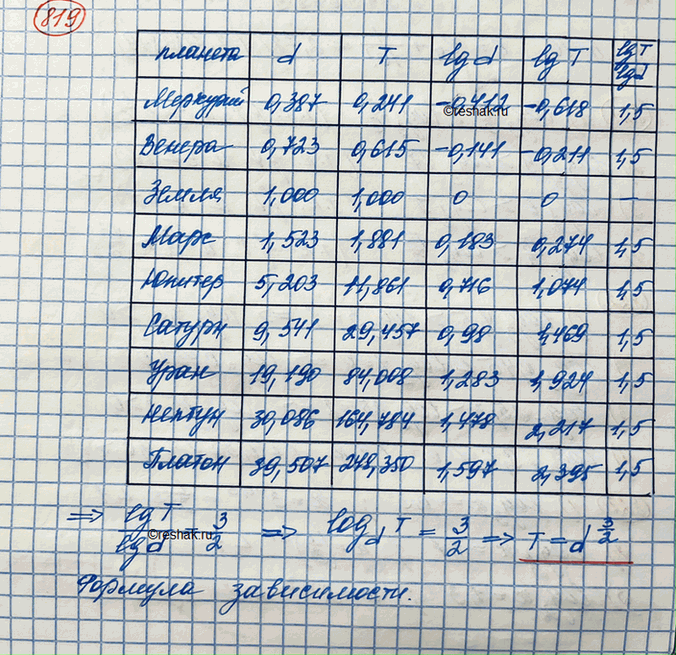 819
планета d T lg d lg T lgT/lgd
Меркурий 0,387 0,241 -0,412 -0,618 1,5
©reshak.ru
Венера 0,723 0,615 -0,141 -0,211 1,5
Земля 1,000 1,000 0 0 —
Марс 1,523 1,881 0,183 0,274 1,5
Юпитер 5,203 11,861 0,716 1,074 1,5
Сатурн 9,541 29,457 0,98 1,469 1,5
Уран 19,190 84,008 1,283 1,924 1,5
Нептун 30,086 164,784 1,478 2,217 1,5
Платон 39,507 248,350 1,597 2,395 1,5
⇒ lgT/lgd = 3/2 ⇒ log_d T = 3/2 ⇒ T = d^(3/2)
©reshak.ru
Формула зависимости.